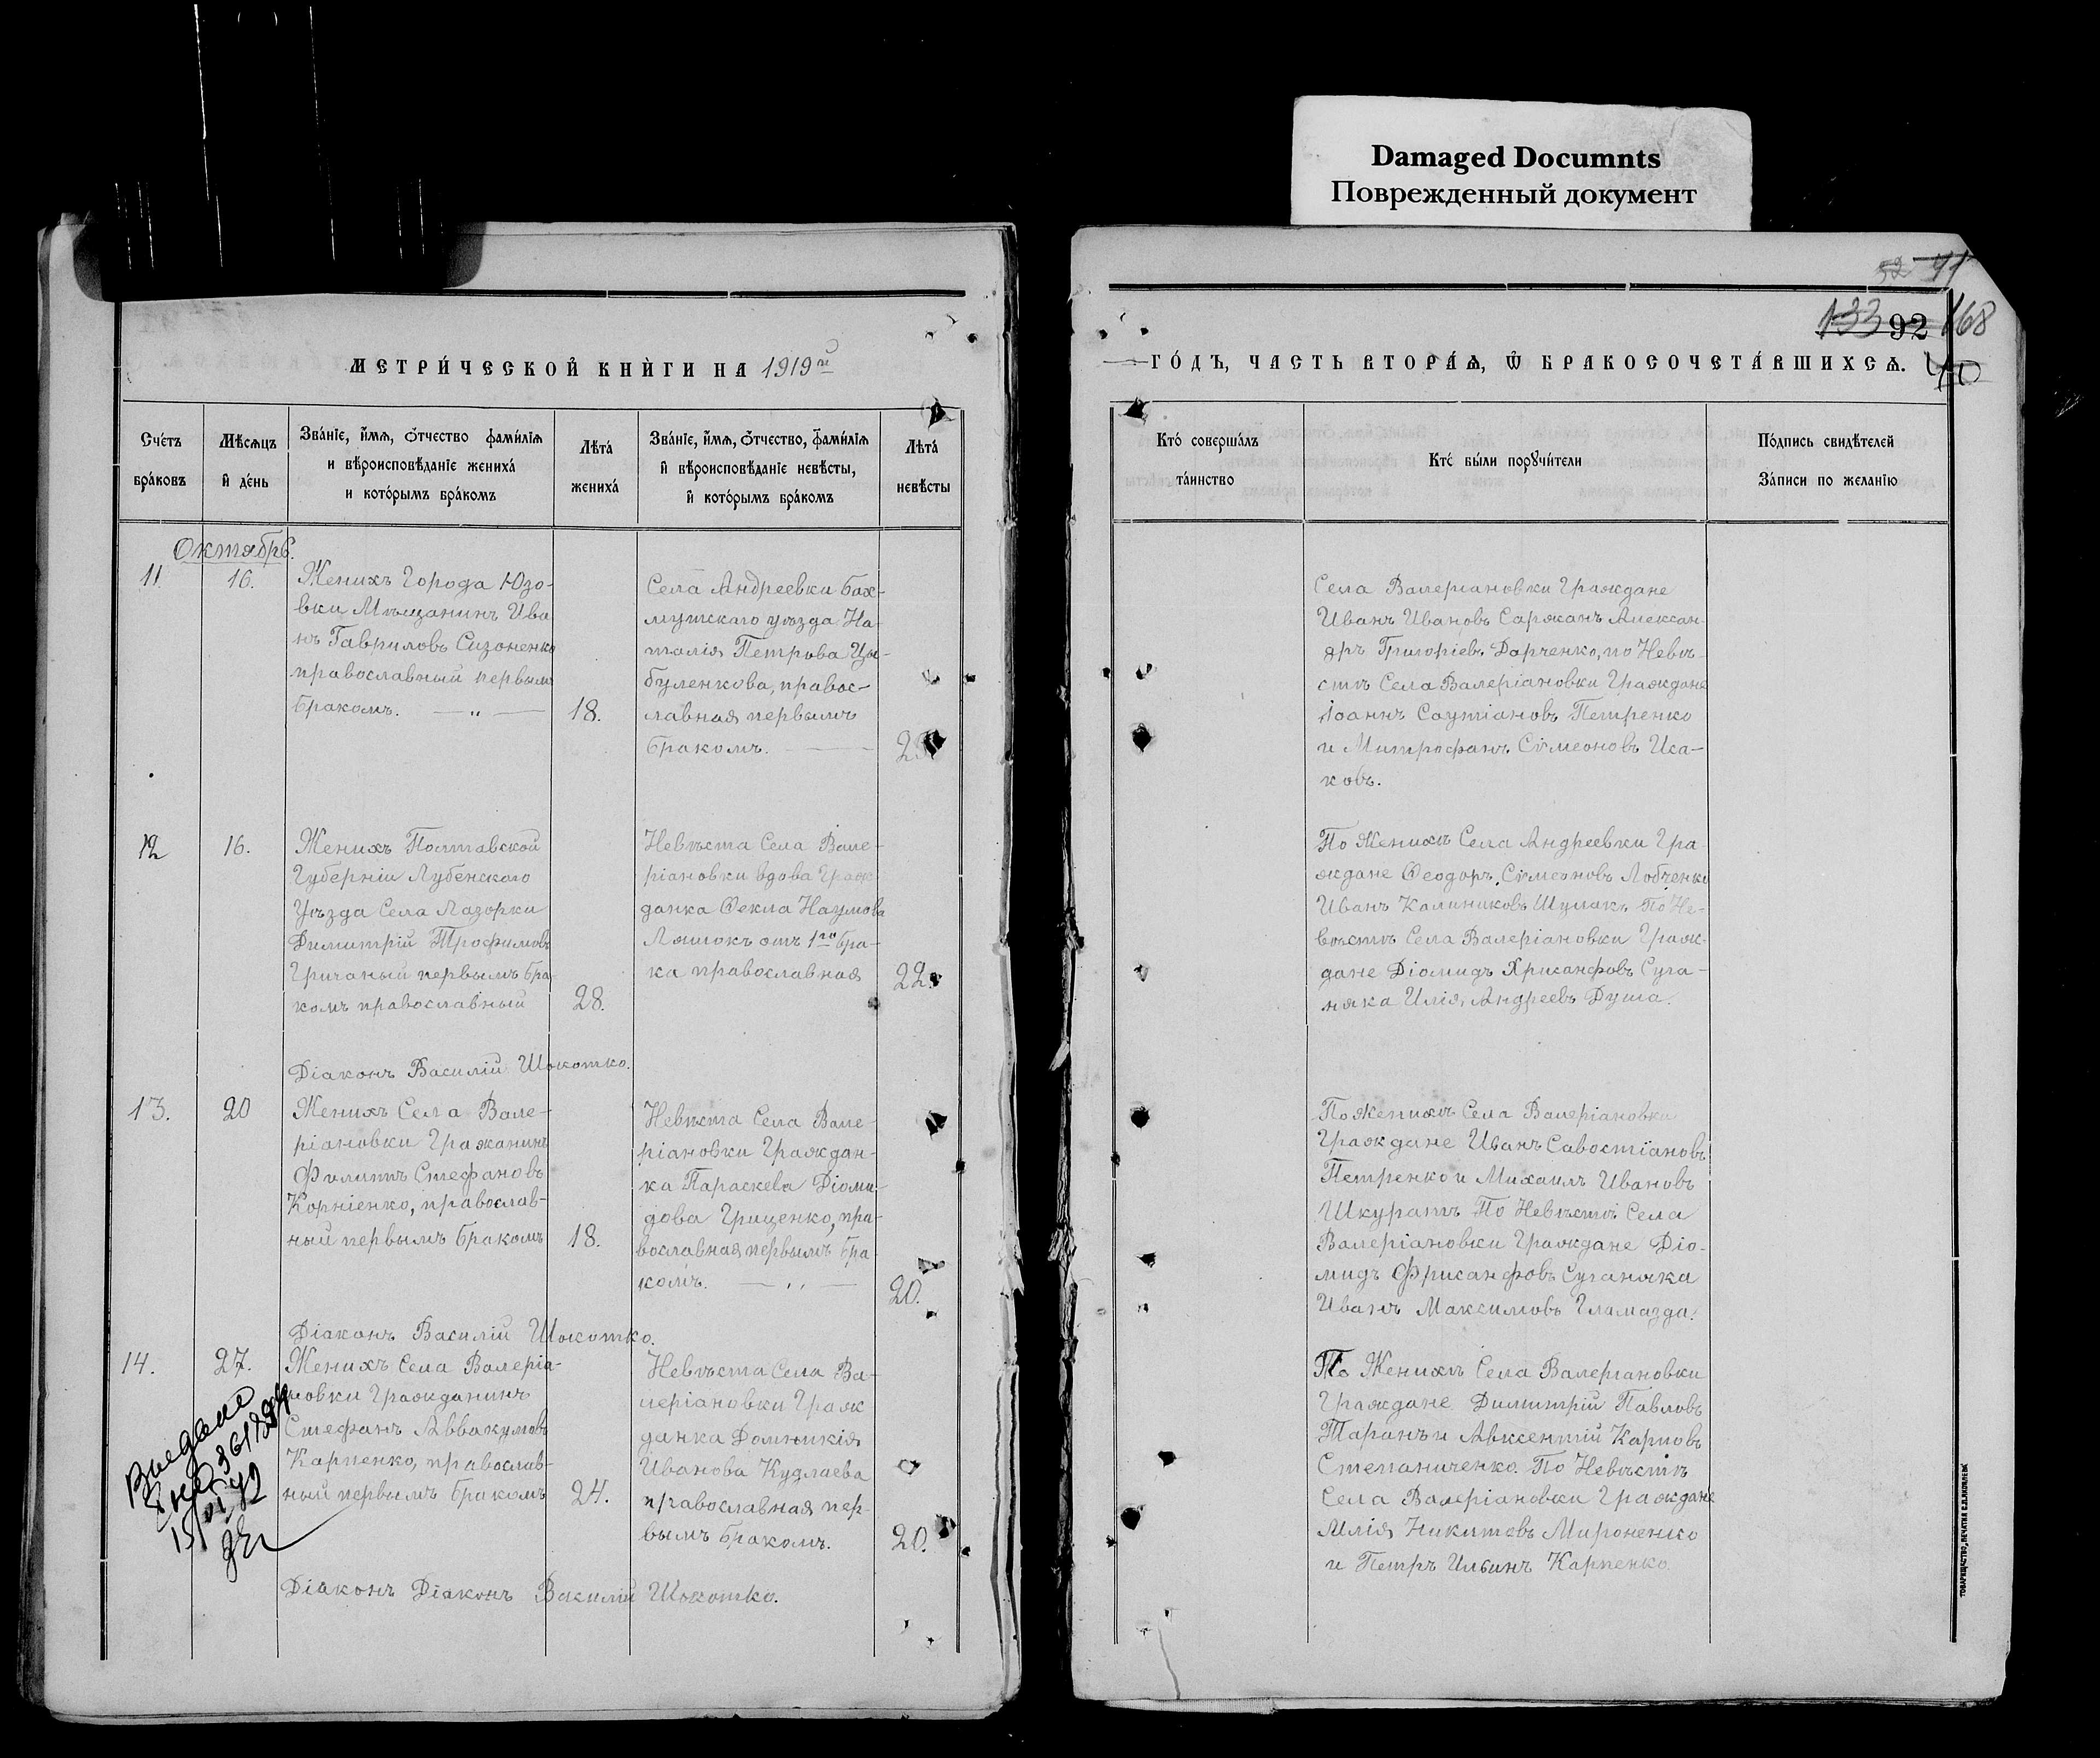 Damaged Documnts
Поврежденный документ
МЕТРИ́ЧЕСКОЙ КНИ́ГИ НА 1919й
Сче́тъ
бра́ковъ
Мѣ́сѧцъ
и҆ де́нь
Зва́нїе, и҆́мѧ, ѻ҆́тчество фами́лїѧ
и вѣроисповѣ́данїе жениха́
и кото́рымъ бра́комъ
Лѣ́та
жениха́
Зва́нїе, и҆́мѧ, ѻ҆́тчество, фами́лїѧ
и҆ вѣроисповѣ́данїе невѣ́сты,
и҆ кото́рымъ бра́комъ
Лѣ́та
невѣ́сты
Октябрь.
11
16.
Женихъ Города Юзо-
вки Мѣщанинъ Ива
нъ Гавриловъ Сизоненко
православный первым
бракомъ. — „ —
18.
Села Андреевки Бах-
мутскаго уѣзда На-
талія Петрова Цы-
буленкова, правос-
лавная первымъ
бракомъ.
12
16.
Женихъ Полтавской
Губерніи Лубенскаго
Уѣзда Села Лазорки
Димитрій Трофимовъ
Гричаный первымъ бра-
комъ православный
28.
Невѣста Села Вале-
ріановки вдова Граж
данка Ѳекла Наумова
Ляшокъ отъ 1го бра-
ка православная
22.
Діаконъ Василій Шокотко.
13.
20
Женихъ Села Вале-
ріановки Гражанинъ
Филиппъ Стефановъ
Корніенко, православ-
ный первымъ бракомъ
18.
Невѣста Села Вале-
ріановки Граждан-
ка Параскева Діоми-
дова Гриценко, пра-
вославная первымъ бра-
комъ. — „ —
20.
Діаконъ Василій Шокотко.
14.
27.
Женихъ Села Валеріа-
новки Гражданинъ
Стефанъ Аввакумовъ
Карпенко, православ-
ный первымъ бракомъ
24.
Невѣста Села Ва-
леріановки Граж
данка Домникія
Иванова Кудлаева
православная пер-
вымъ бракомъ.
20.
Діаконъ Діаконъ Василій Шокотко.
133 92 168
ГО́ДЪ, ЧАСТЬ ВТОРА́Ѧ, Ѿ БРАКОСОЧЕТА́ВШИХСѦ.
40
Кто́ соверша́лъ
та́инство
Кто́ бы́ли порꙋчи́тели
По́дпись свидѣ́телей
За́писи по жела́нїю
Села Валеріановки Граждане
Иванъ Ивановъ Саржанъ Алексан-
дръ Григоріевъ Дарченко, по Невѣ-
стѣ Села Валеріановки Граждане
Іоаннъ Петренко
и Митрофанъ Сѵмеоновъ Иса-
ковъ.
По Женихѣ Села Андреевки Гра-
ждане Ѳеодоръ Сѵмеоновъ Лобченко
Иванъ Калиниковъ Шулакъ По Не-
вѣстѣ Села Валеріановки Граж-
дане Діомидъ Хрисанфовъ Суга-
няка Илія Андреевъ Душа.
По женихѣ Села Валеріановки
Граждане Иванъ Савостіановъ
Петренко и Михаилъ Ивановъ
Шкуратъ По Невѣстѣ Села
Валеріановки Граждане Діо-
мидъ Фрисанфовъ Суганяка
Иванъ Максимовъ Гламазда.
По Женихѣ Села Валеріановки
Граждане Димитрій Павловъ
Таранъ и Авксентій Карповъ
Степаниченко. По Невѣстѣ
Села Валеріановки Граждане
Илія Никитевъ Мироненко
и Петръ Ильинъ Карпенко.